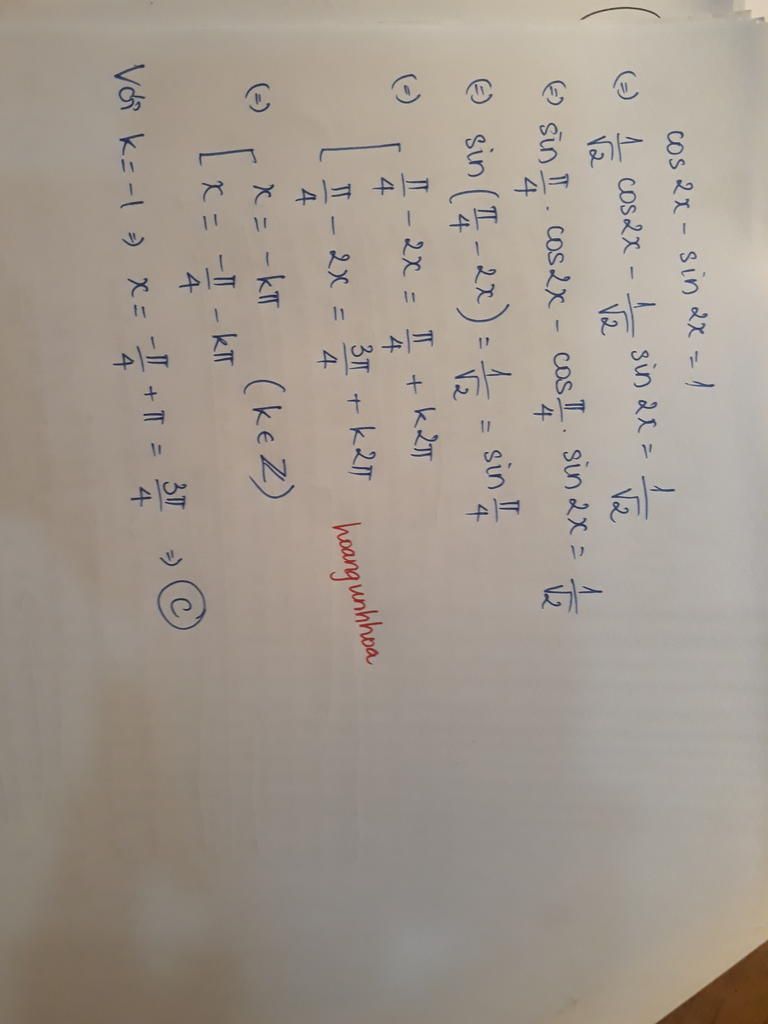 cos 2x - sin 2x = 1
(=) 1/√2 cos2x - 1/√2 sin 2x = 1/√2
(=) sin π/4 . cos2x - cos π/4 . sin 2x = 1/√2
(=) sin(π/4 - 2x) = 1/√2 = sin π/4
(=) [ π/4 - 2x = π/4 + k2π
π/4 - 2x = 3π/4 + k2π
hoangunhhoa
(=) [ x = -kπ
x = -π/4 - kπ (k ∈ ℤ)
Với k = -1 => x = -π/4 + π = 3π/4 => C